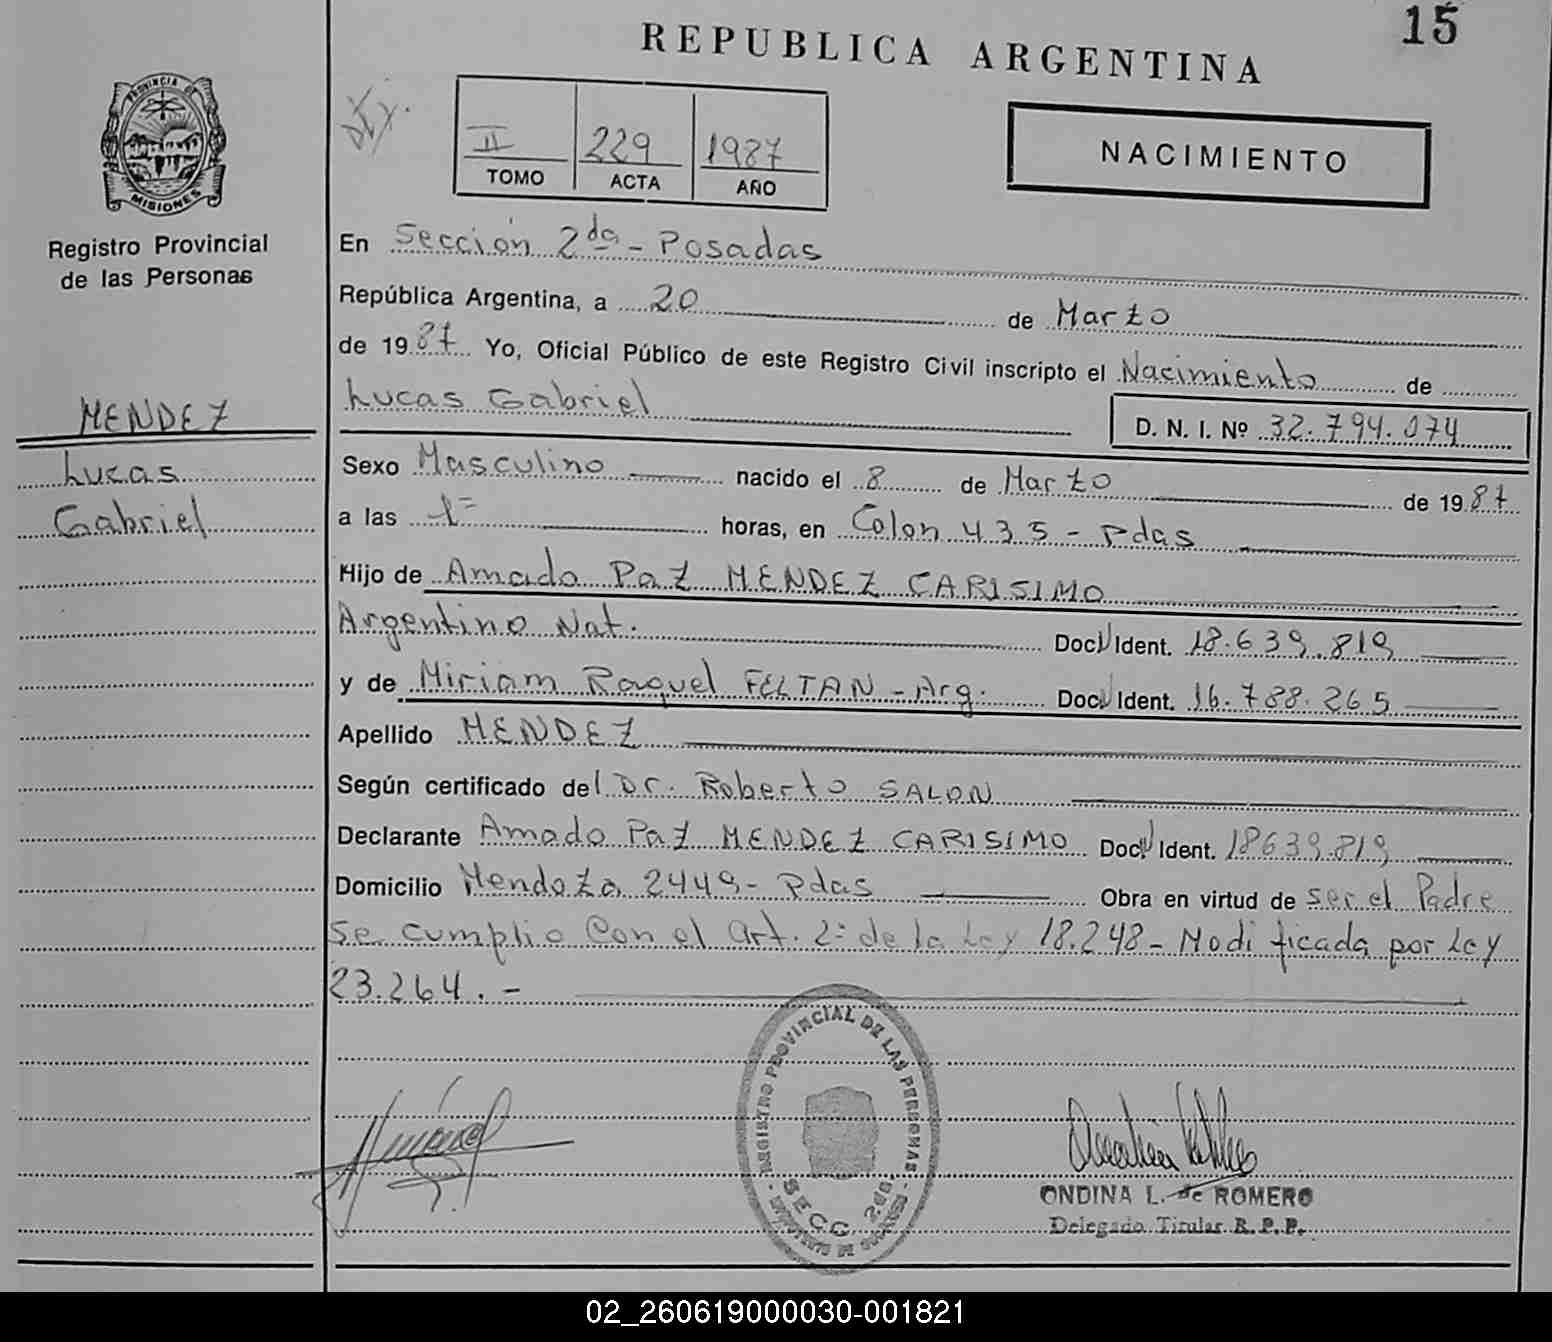 15
REPUBLICA ARGENTINA
PROVINCIA DE
MISIONES
Registro Provincial
de las Personas
II 229 1987
TOMO ACTA AÑO
NACIMIENTO
En Sección 2da - Posadas
República Argentina, a 20 de Marzo
de 1987 Yo, Oficial Público de este Registro Civil inscripto el Nacimiento de
Lucas Gabriel
D. N. I. Nº 32.794.074
MENDEZ
Lucas
Gabriel
Sexo Masculino nacido el 8 de Marzo de 1987
a las 1= horas, en Colon 435 - Pdas
Hijo de Amado Paz MENDEZ CARISIMO
Argentino Nat. Doc. Ident. 18.639.819
y de Miriam Raquel FELTAN - Arg. Doc. Ident. 16.788.265
Apellido MENDEZ
Según certificado del Dr. Roberto SALON
Declarante Amado Paz MENDEZ CARISIMO Doc. Ident. 18639.819
Domicilio Mendoza 2449 - Pdas Obra en virtud de ser el Padre
Se cumplio Con el art. 2: de la Ley 18.248 - Modificada por Ley
23.264. -
REGISTRO PROVINCIAL DE LAS PERSONAS
SECC. 2da.
ONDINA L. de ROMERO
Delegado Titular R. P. P.
02_260619000030-001821